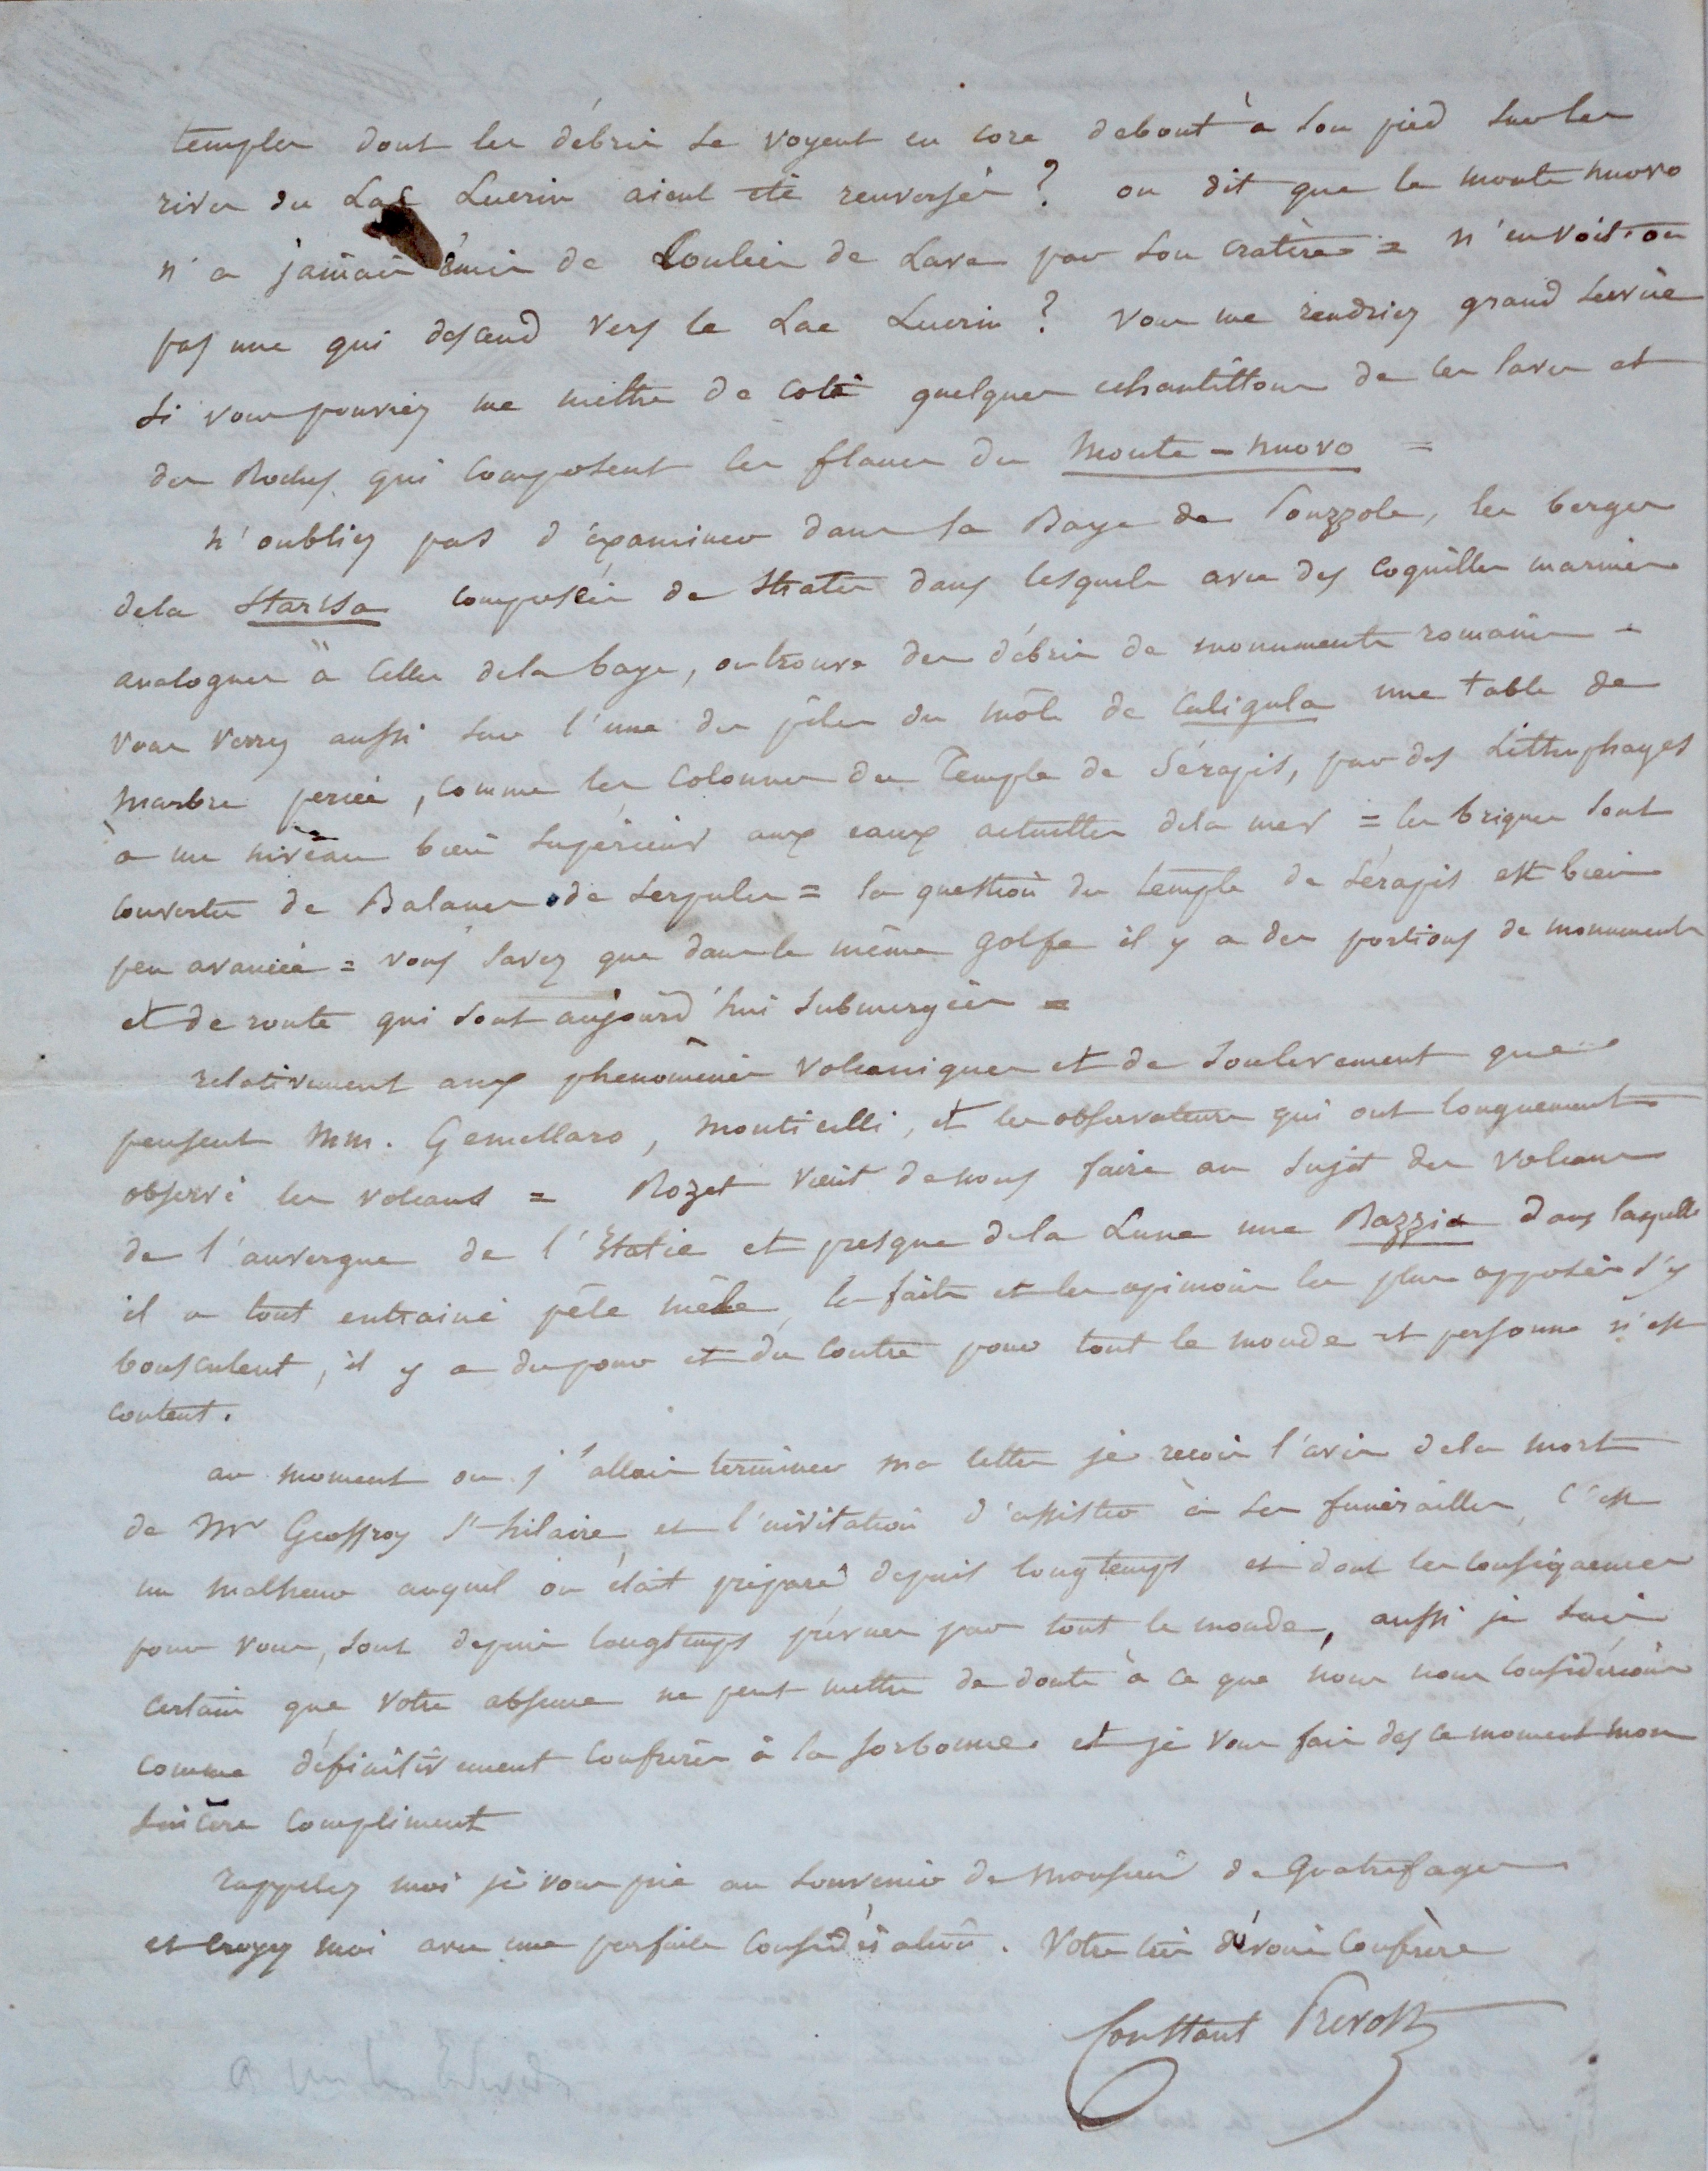 temples dont les débris se voyent en core debout à son pied sur les
rives du Lac Lucrin aient été renversés ? on dit que le monte nuovo
n'a jamais émis de Coulées de Lave par son cratère = n'en voit-on
pas une qui descend vers le Lac Lucrin ? vous me rendriez grand service
si vous pouviez me mettre de coté quelques echantillons de ces laves et
des Roches qui composent les flancs du Monte-nuovo =
n'oubliez pas d'éxaminer dans la Baye de Pouzzole, les berges
dela Starsa composées de strates dans lesquels avec des coquilles marines
analogues à celles dela baye, on trouve des débris de monuments romains =
vous verrez aussi sur l'une des piles du môle de Caligula une table de
marbre percée, comme les colonnes du Temple de Sérapis, par des Lithophages
à un niveau bien supérieur aux eaux actuelles dela mer = les briques sont
couvertes de Balanes de serpules = la question du temple de Sérapis est bien
peu avancée = vous savez que dans le même golfe il y a des portions de monuments
et de route qui sont aujourd'hui submergées =
relativement aux phenomènes volcaniques et de soulevement que
pensent MM. Gemellaro, Monticelli, et les observateurs qui ont longuement
observé les volcans = Rozet vient de nous faire au sujet des volcans
de l'auvergne de l'Italie et presque dela Lune une Razzia dans laquelle
il a tout entrainé pêle mêle, les faits et les opinions les plus opposés s'y
bousculent, il y a du pour et du contre pour tout le monde et personne n'est
content.
au moment ou j'allais terminer ma lettre je reçois l'avis dela mort
de Mr Geoffroy St hilaire et l'invitation d'assister à ses funérailles, c'est
un malheur auquel on était préparé depuis longtemps et dont les conséquences
pour vous, sont depuis longtemps prévues par tout le monde, aussi je suis
certain que votre absence ne peut mettre de doute à ce que nous nous considérions
comme définitivement confrères à la sorbonne. et je vous fais dès ce moment mon
sincère compliment
rappelez moi je vous prie au souvenir de monsieur de Quatrefages
et croyez moi avec une parfaite considération. Votre très dévoué confrère
Constant Prevost
a Milne Edwards